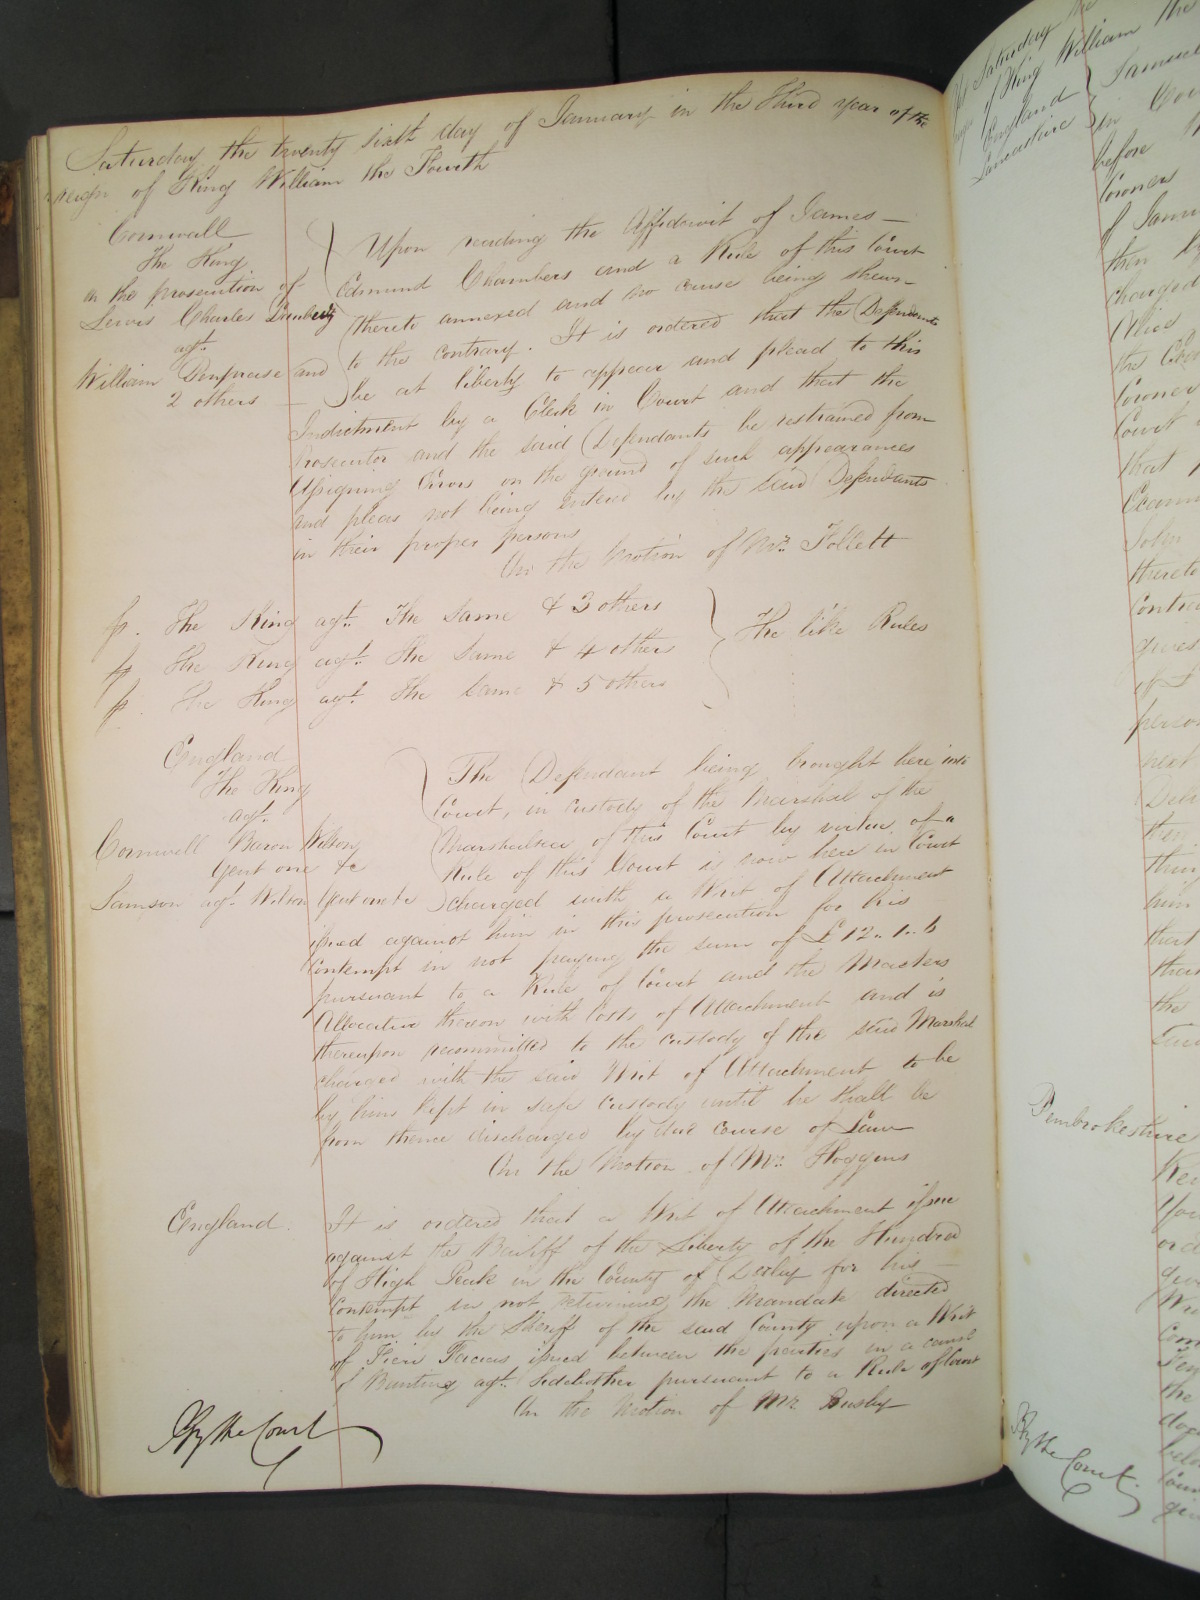 Saturday the twenty sixth day of January in the Third year of the
reign of King William the Fourth
Cornwall
The King
on the prosecution of
Lewis Charles
agt.
William and
2 others
Upon reading the Affidavit of James
Edmund Chambers and a Rule of this Court
thereto annexed and no cause being shewn
to the contrary. It is ordered that the Defendants
be at liberty to appear and plead to this
Indictment by a Clerk in Court and that the
Prosecutor and the said Defendants be restrained from
Assigning Errors on the ground of such appearances
and pleas not being entered by the said Defendants
in their proper persons
On the Motion of Mr. Follett
The King agt. The Same & 3 others
The King agt. The Same & 4 others
The King agt. The Same & 5 others
The like Rules
England
The King
agt.
Cornwall Baron Wilson
Gent one &c
Samson agt. Wilson Gent one &c
The Defendant being brought here into
Court, in custody of the Marshal of the
Marshalsea of this Court by virtue of a
Rule of this Court is now here in Court
charged with a Writ of Attachment
issued against him in this prosecution for his
Contempt in not paying the sum of £12.. 1.. 6
pursuant to a Rule of Court and the Masters
Allocatur thereon with Costs of Attachment and is
thereupon recommitted to the custody of the said Marshal
charged with the said Writ of Attachment to be
by him kept in safe custody until he shall be
from thence discharged by due course of Law
On the Motion of Mr. Hoggins
England.
It is ordered that a Writ of Attachment issue
against the Bailiff of the Liberty of the Hundred
of High Peak in the County of Derby for his
Contempt in not returning the Mandate directed
to him by the Sheriff of the said County upon a Writ
of Fieri Facias issued between the parties in a cause
of Bunting agt. Sidebother pursuant to a Rule of Court
On the Motion of Mr. Busby
By the Court
Saturday the
of King William the
England
Lancashire
Samuel
in
before
Coroners
of
then
charged
Alice
the
Coroner
Court
that
John
thereto
gives
person
next
then
him
that
the
said
Pembrokeshire
the
By the Court.